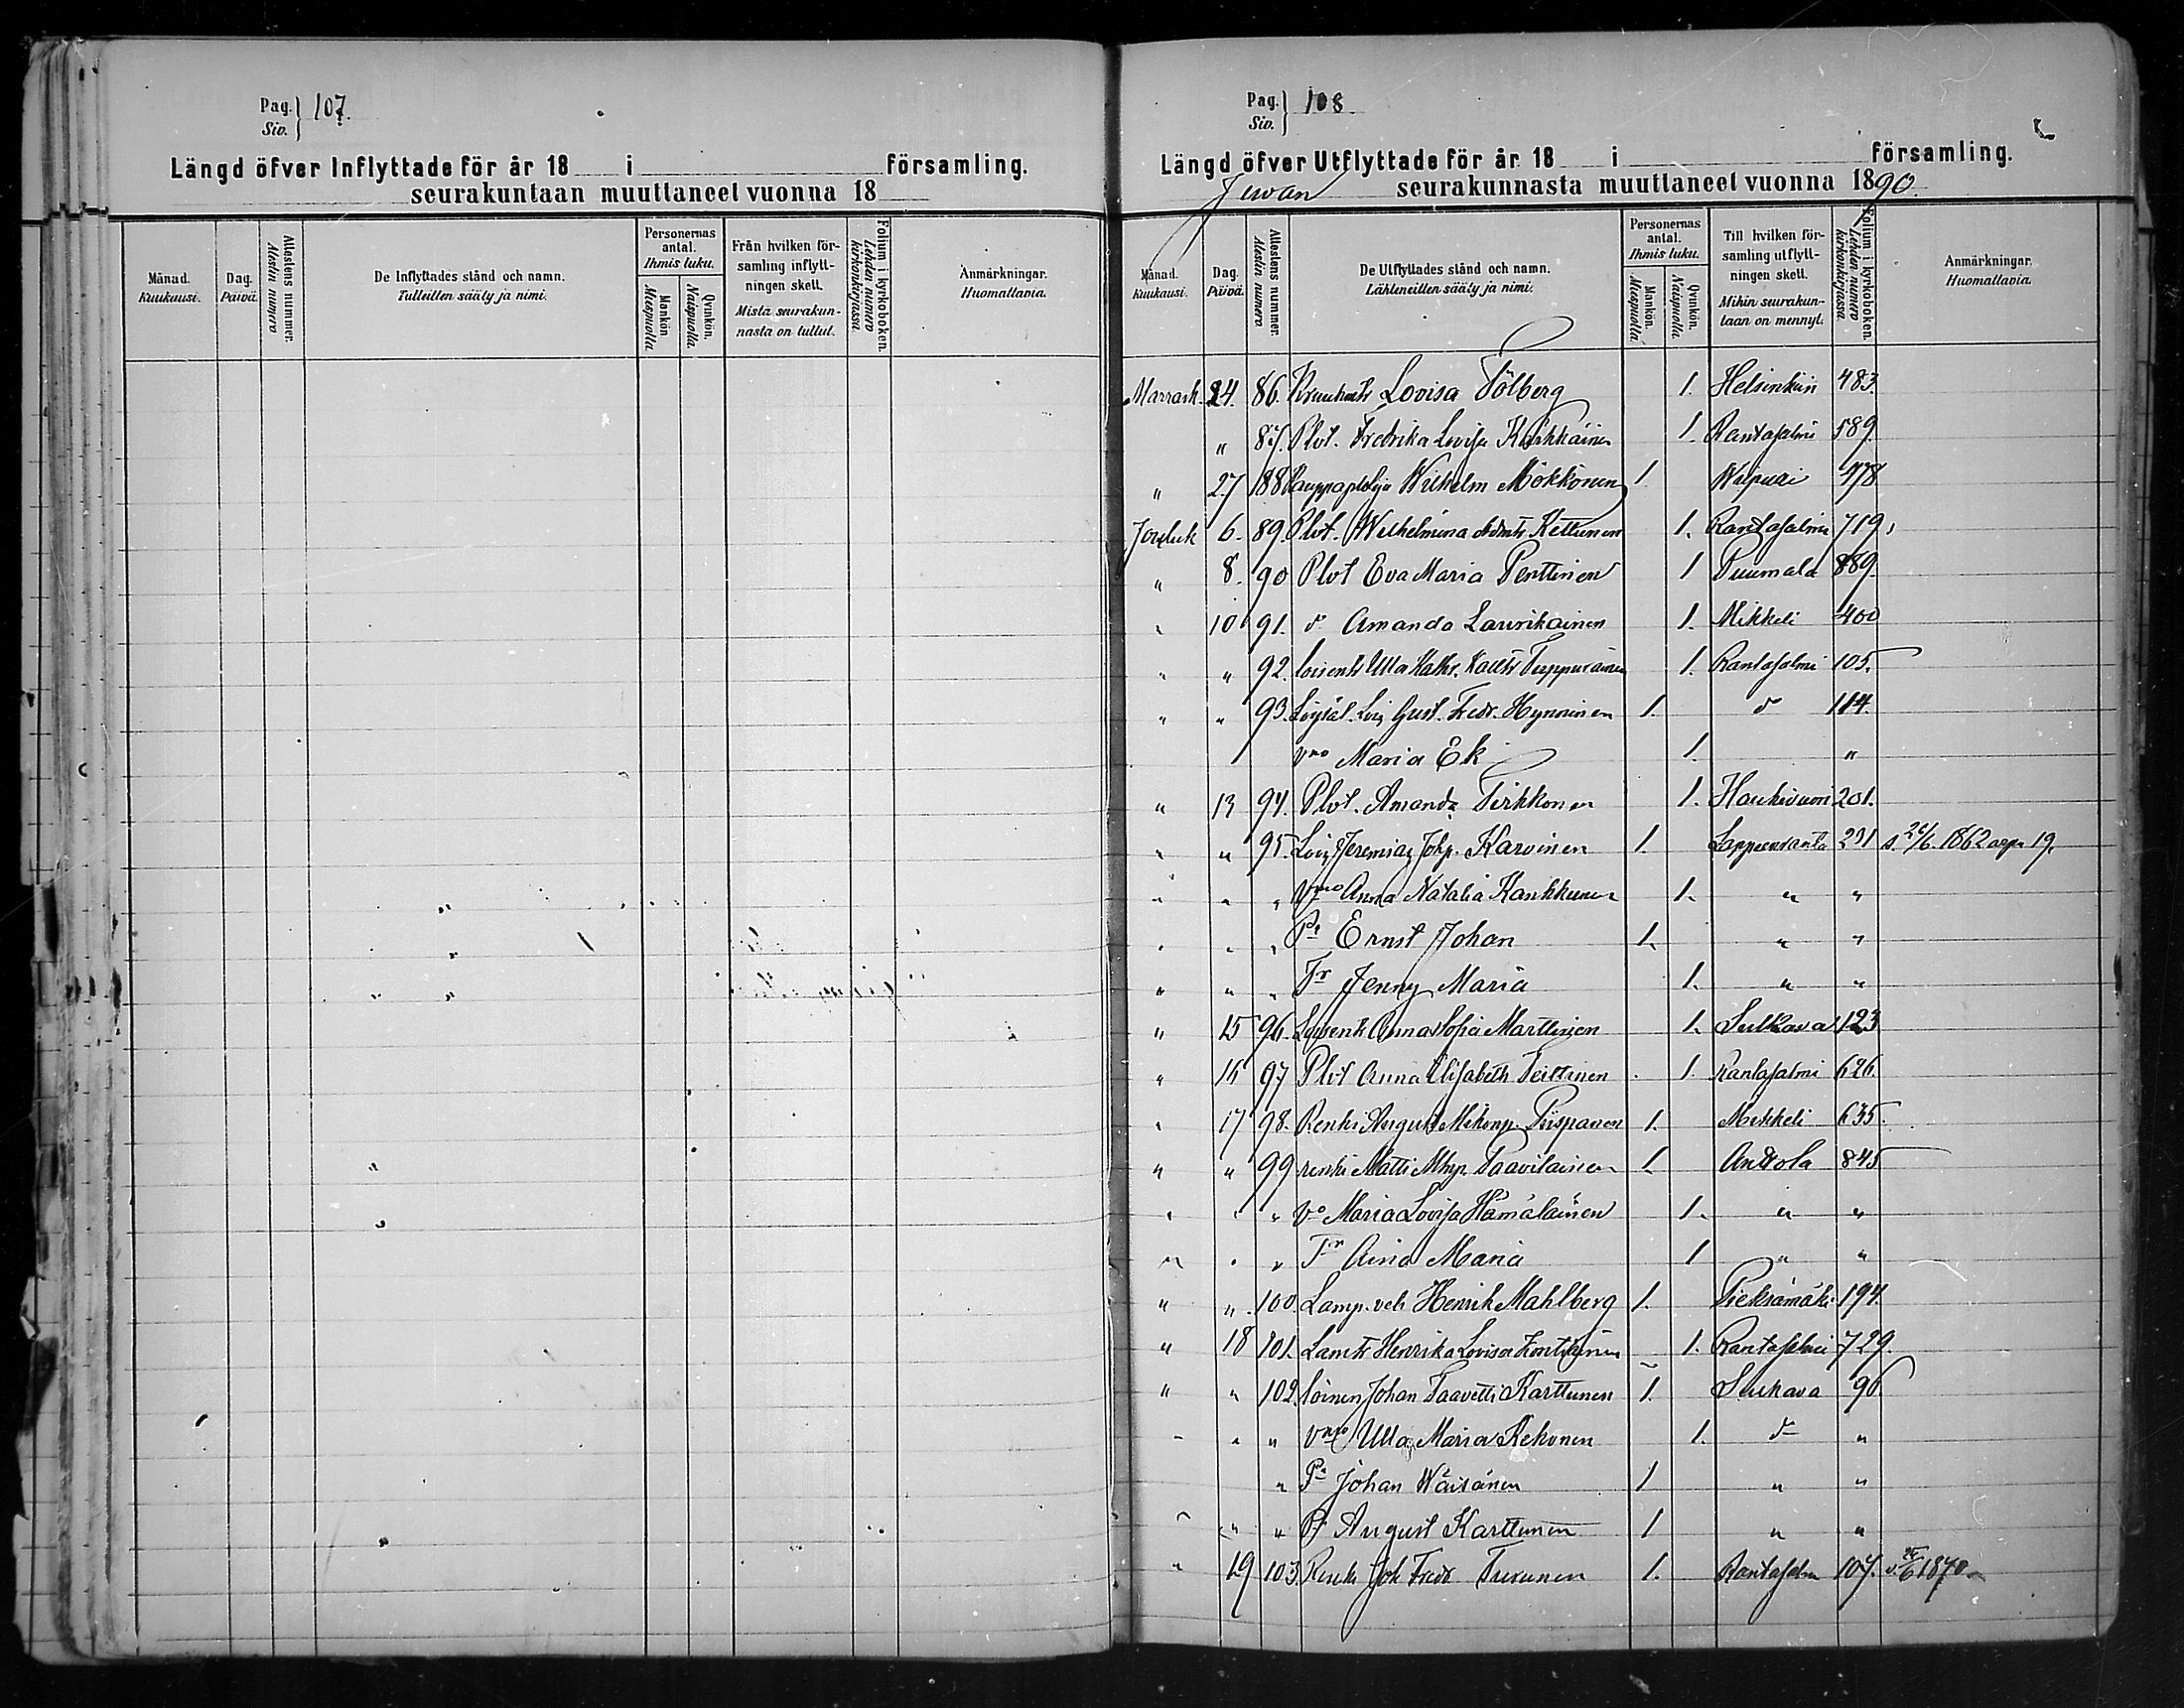 Pag. Siv. } 107.
Längd öfver Inflyttade för år 18 i församling.
seurakuntaan muuttaneet vuonna 18
Månad. Kuukausi.
Dag. Päivä.
Attestens nummer. Atestin numero
De Inflyttades stånd och namn. Tulleitten sääty ja nimi.
Personernas antal. Ihmis luku.
Mankön Miespuolia
Qvinkön. Naispuolia.
Från hvilken församling inflyttningen skett. Mistä seurakunnasta on tullut.
Folium i kyrkoboken. Lehden numero kirkonkirjassa.
Anmärkningar. Huomattavia.
Pag. Siv. } 108.
Längd öfver Utflyttade för år 18 i församling.
Juvan seurakunnasta muuttaneet vuonna 1890.
Månad. Kuukausi.
Dag. Päivä.
Attestens nummer. Atestin numero
De Utflyttades stånd och namn. Lähteneitten sääty ja nimi.
Personernas antal. Ihmis luku.
Mankön. Miespuolia
Qvinkön. Naispuolia.
Till hvilken församling utflyttningen skett. Mihin seurakuntaan on mennyt.
Folium i kyrkoboken. Lehden numero kirkonkirjassa
Anmärkningar. Huomattavia.
Marrask. 24. 86. Lovisa Fölberg 1. Helsinkiin 483.
" 87. Plvt. Fredrika Lovisa Kärkkäinen 1. Rantasalmi 589.
" 27 188 Wilhelm Mökkönen 1. Wiipuri 478
Jouluk 6. 89. Plvt. Wilhelmina Kettunen 1. Rantasalmi 719.
" 8. 90 Plvt Eva Maria Penttinen 1 Puumala 889.
" 10 91. d Amanda Laurikainen 1. Mikkeli 400
" " 92. loisentr Ulla Kathr. Teppurainen 1. Rantasalmi 105.
" " 93. Gust. Fredr. Hynninen 1. d 114.
vmo Maria Ek 1. "
" 13 94. Plvt. Amanda Pirhkonen 1. Haukivuori 201.
" " 95. Jeremias Johp. Karvinen 1. Lappeenranta 231 s. 26/6. 1862 19.
" " " Vmo Anna Natalia Kankkunen 1. " "
" " " Pa Ernst Johan 1. " "
" " " Tr Jenny Maria 1. " "
" 15 96. Loisentr Anna Sofia Marttinen 1. Sulkava 123
" 16 97 Plvt Anna Elisabeth Teittinen 1. Rantasalmi 626.
" 17 98. Renki August Piispanen 1. Mikkeli 635.
" " 99 renki Matti Mhp. Taavilainen 1. Anttola 845
" " " Vo Maria Lovisa Hämäläinen 1. " "
" " " Tr Aina Maria 1 " "
" " 100. Lamp. veli Henrik Mahlberg 1. Pieksämäki 194.
" 18 101. Lamtr Henrika Lovisa Kontinen 1. Rantasalmi 729.
" " 102. loinen Johan Taavetti Karttunen 1. Sulkava 96.
" " " vmo Ulla Maria Rekonen 1. d "
" Pa Johan Wäisänen 1 " "
" " " Pa August Karttunen 1 " "
" 19 103. Renki Joh Fredr Turunen 1. Rantasalmi 107.